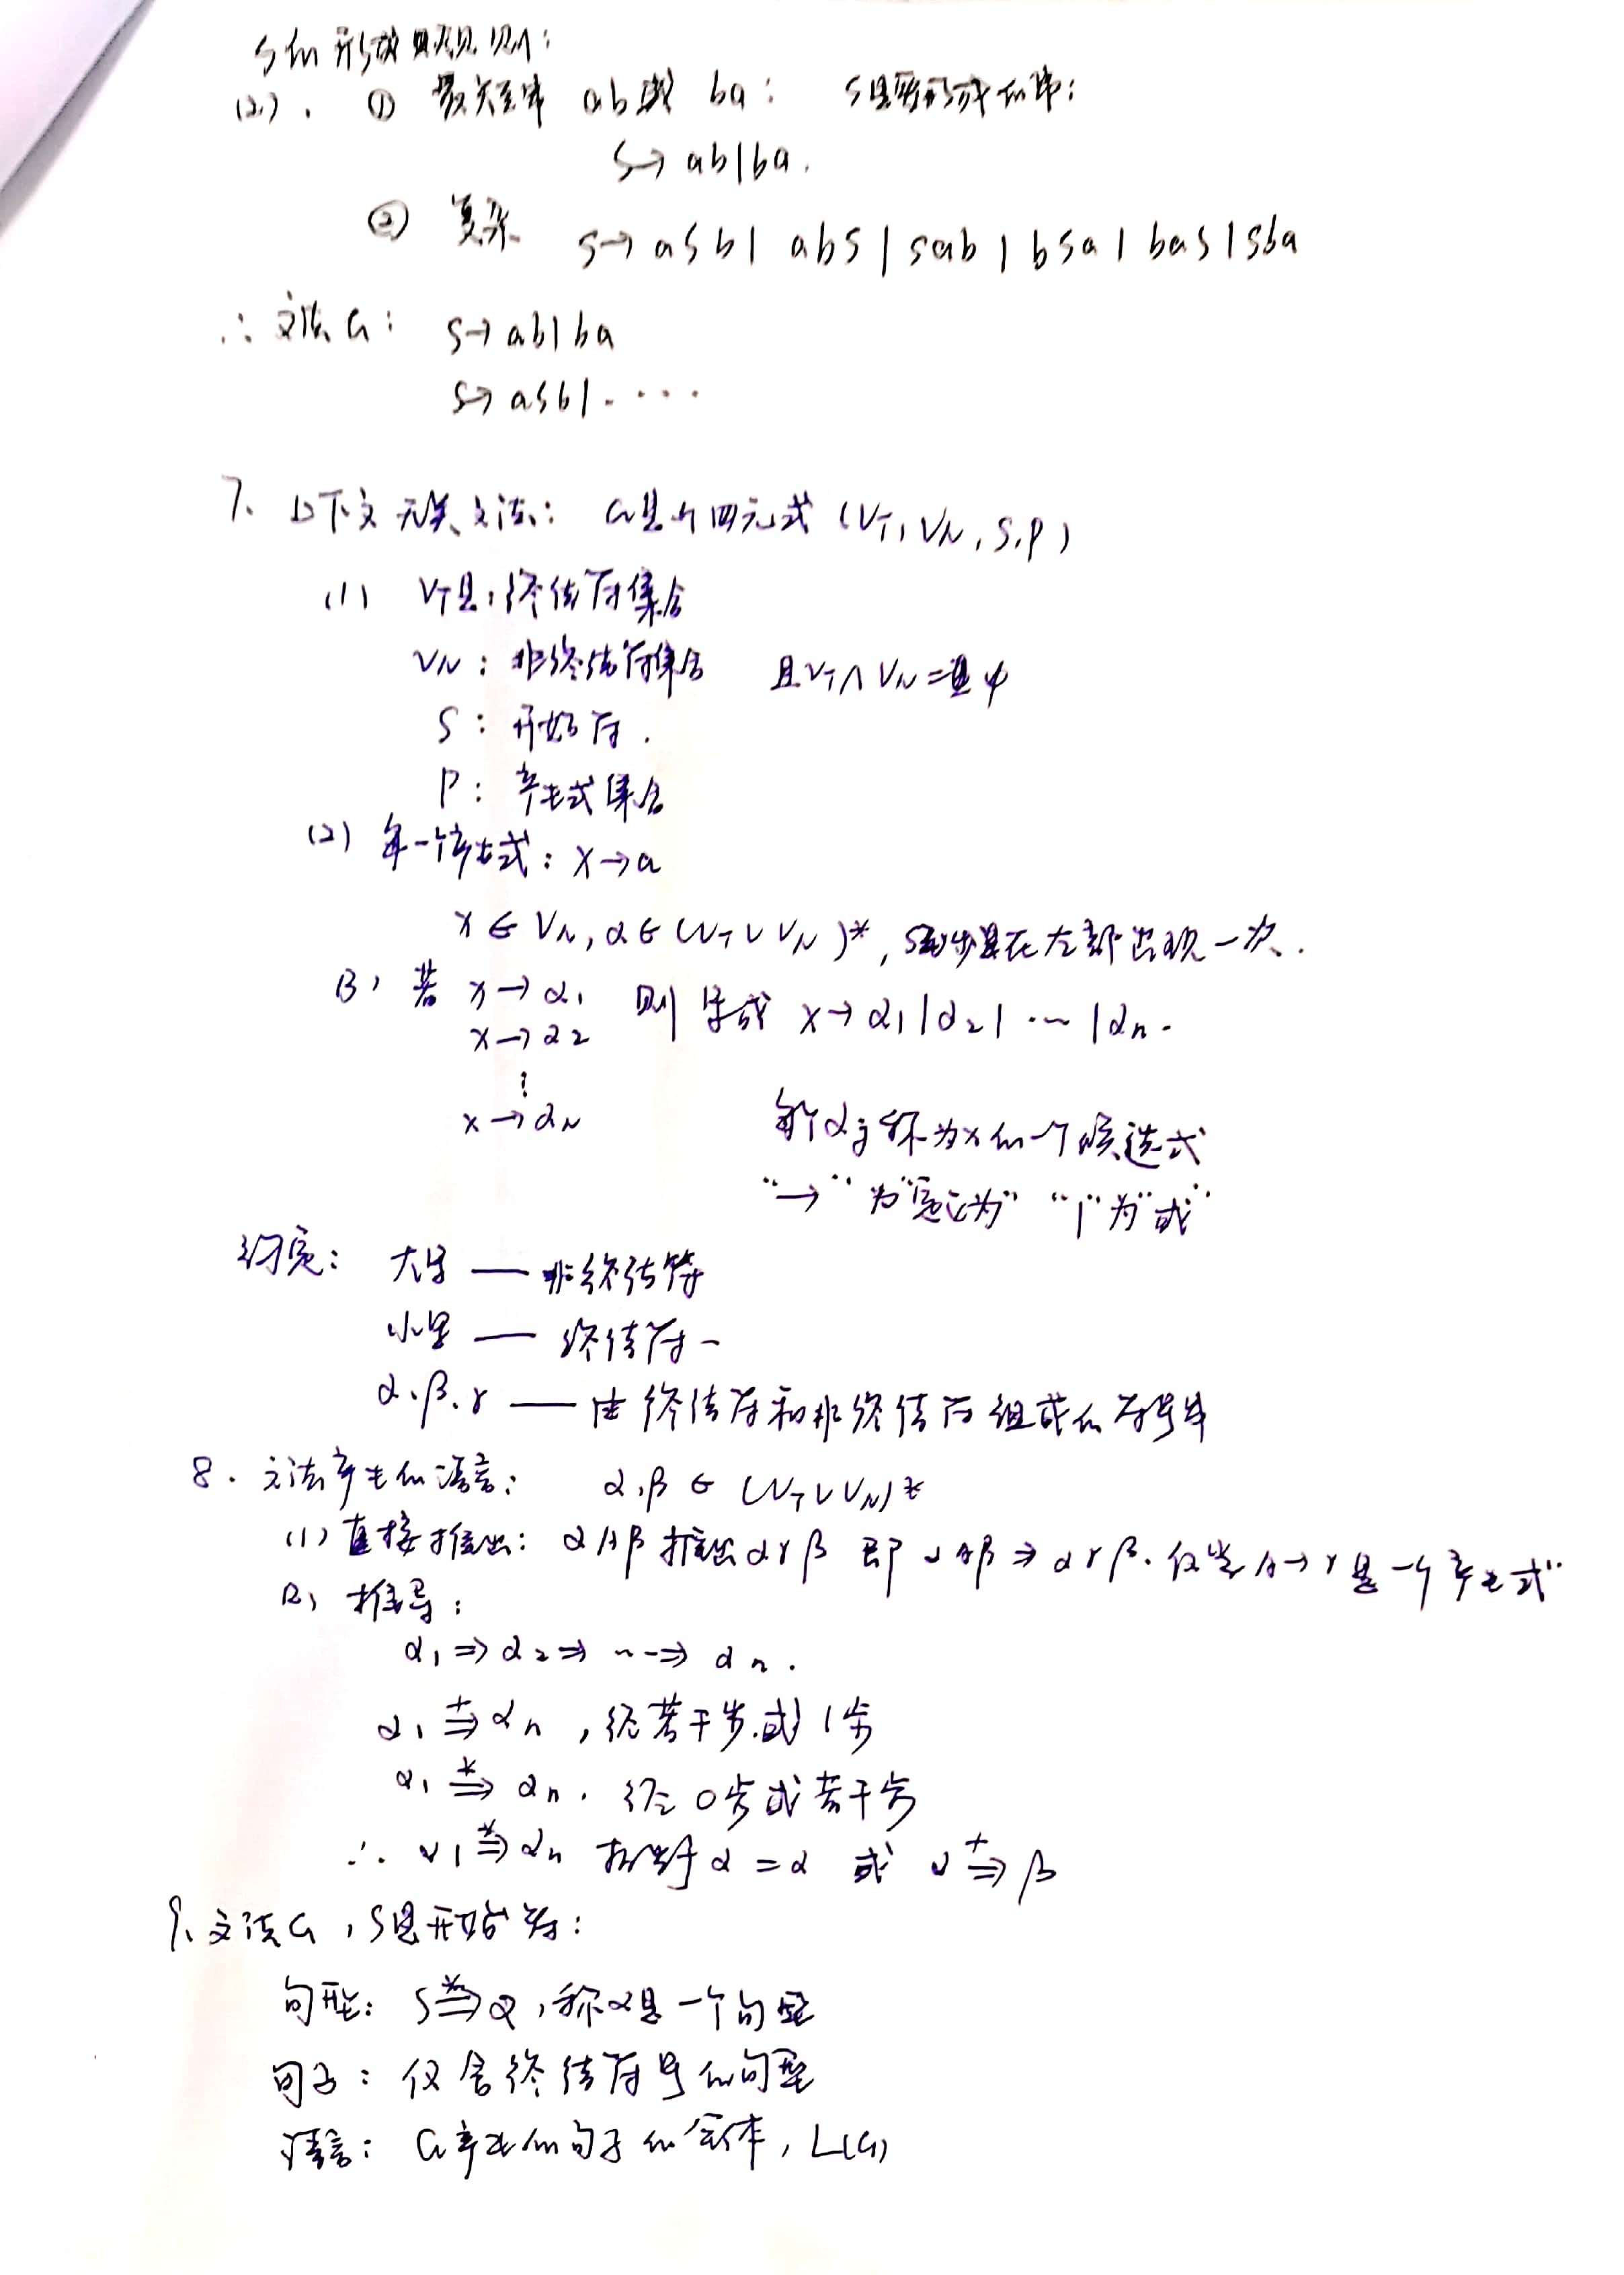 S的形成规则:
(2). ① 最短串 ab或 ba: S是所形成的串:
S→ ab|ba.
② 复杂 S→ aSb| abS | Sab | bSa | baS | Sba
∴ 文法G: S→ab|ba
S→ aSb|.....
7、上下文无关文法: G是个四元式 (VT, VN, S, P)
(1) VT是:终结符集合
VN: 非终结符集合 且VT∩VN=φ
S: 开始符.
P: 产生式集合
(2) 每一个产生式: X→α
X∈VN, α∈(VT∪VN)*, S至少在左部出现一次.
(3) 若 X→α1 则 写成 X→α1|α2|…|αn.
X→α2
⋮
X→αN
每个αj称为X的一个候选式
“→” 为“定义为” “|”为“或”
约定: 大写 —— 非终结符
小写 —— 终结符
α、β、γ —— 由终结符和非终结符组成的符号串
8. 文法产生的语言: α,β∈(VT∪VN)*
(1) 直接推出: αAβ推出αγβ 即 αAβ⇒αγβ. 仅当A→γ是一个产生式
(2) 推导:
α1⇒α2⇒…⇒αn.
α1 +⇒ αn , 经若干步.或1步
α1 *⇒ αn. 经0步或若干步
∴ α1 *⇒ αn 相当于 α=α 或 α +⇒ β
9、文法G, S是开始符:
句型: S *⇒ α, 称α是一个句型
句子: 仅含终结符号的句型
语言: G产生的句子的全体, L(G)